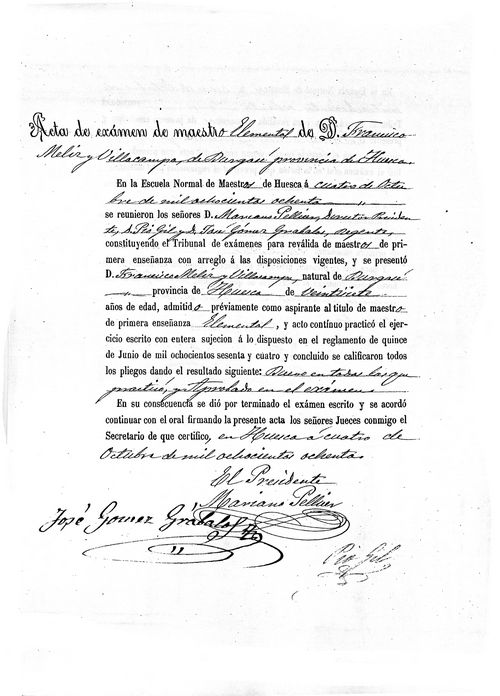 Acta de exámen de maestro Elemental de D. Francisco
Meliz y Villacampa, de Burgasé provincia de Huesca.
En la Escuela Normal de Maestros de Huesca á cuatro de Octu
bre de mil ochocientos ochenta
se reunieron los señores D. Mariano Pellicer, Director Presiden
te, D. Pio Gil y D. José Gomez Grabalos, Regente,
constituyendo el Tribunal de exámenes para reválida de maestros de pri-
mera enseñanza con arreglo á las disposiciones vigentes, y se presentó
D. Francisco Meliz y Villacampa, natural de Burgasé
„ provincia de Huesca de veintisiete
años de edad, admitido préviamente como aspirante al título de maestro
de primera enseñanza Elemental, y acto contínuo practicó el ejer-
cicio escrito con entera sujecion á lo dispuesto en el reglamento de quince
de Junio de mil ochocientos sesenta y cuatro y concluido se calificaron todos
los pliegos dando el resultado siguiente: Bueno en todos los que
practicó, y Aprobado en el exámen
En su consecuencia se dió por terminado el exámen escrito y se acordó
continuar con el oral firmando la presente acta los señores Jueces conmigo el
Secretario de que certifico, en Huesca á cuatro de
Octubre de mil ochocientos ochenta.
El Presidente
Mariano Pellicer
José Gomez Grábalos
Pio Gil